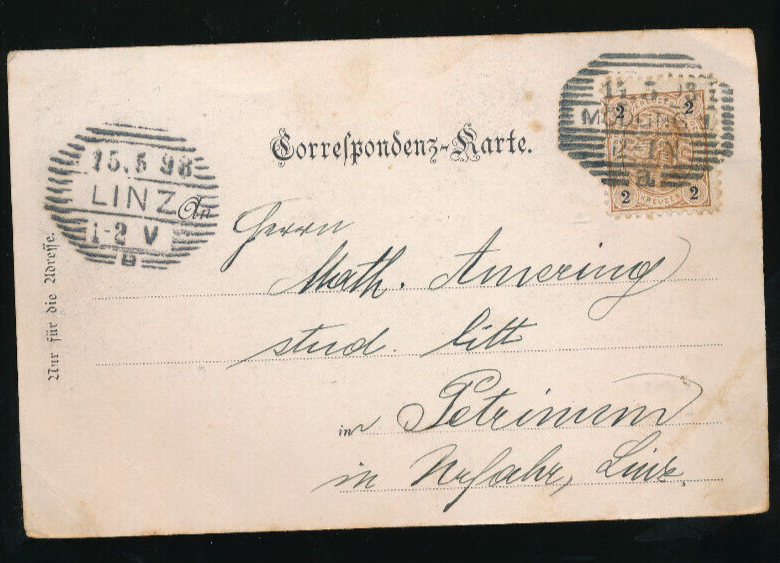 Correspondenz-Karte.
2 2
2 KREUZER 2
15.5.98
LINZ
1-2 V
B
An
Herrn
Math. Amering
stud. litt
in Petrinum
in Urfahr, Linz.
Nur für die Adresse.